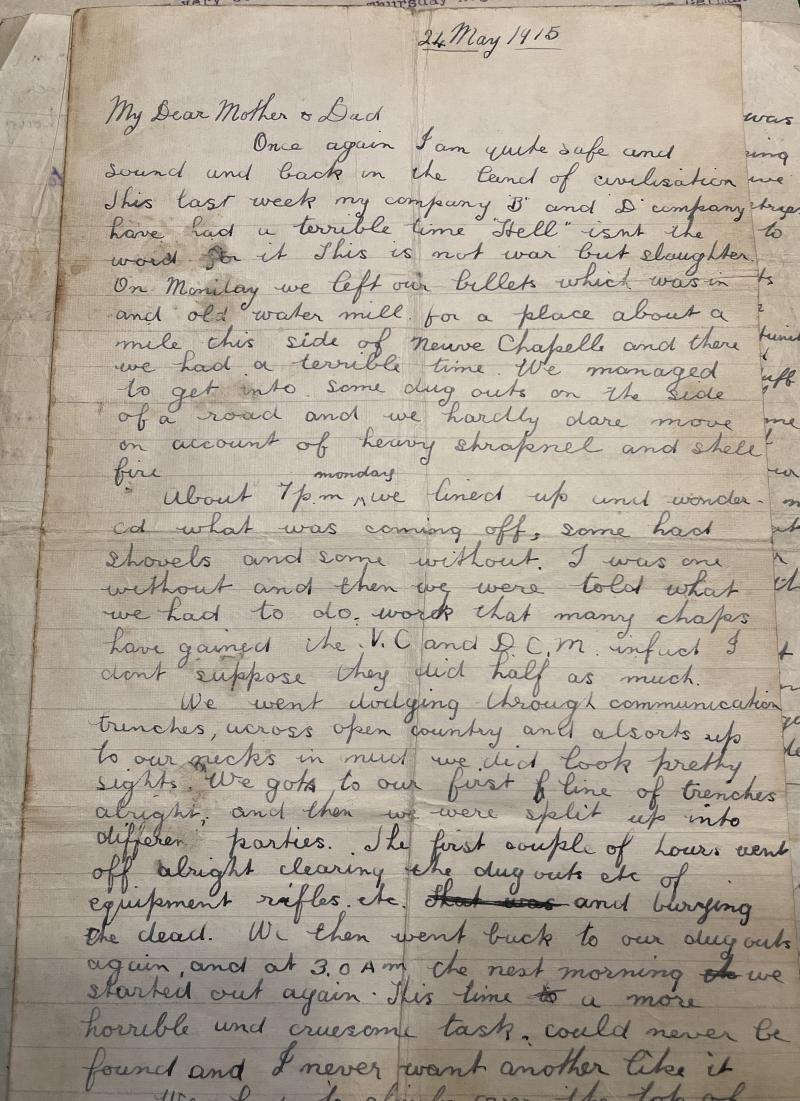 24 May 1915
My Dear Mother & Dad
Once again I am quite safe and
sound and back in the land of civilisation
This last week my company "B" and "D" company
have had a terrible time "Hell" isnt the
word for it This is not war but slaughter.
On Monday we left our billets which was in
and old water mill. for a place about a
mile this side of Neuve Chapelle and there
we had a terrible time. We managed
to get into some dug outs on the side
of a road and we hardly dare move
on account of heavy shrapnel and shell
fire
monday
About 7 p.m ^ we lined up and wonder-
ed what was coming off, some had
shovels and some without. I was one
without and then we were told what
we had to do. work that many chaps
have gained the V.C and D.C.M. infact I
dont suppose they did half as much.
We went dodging through communication
trenches, across open country and alsorts up
to our necks in mud we did look pretty
sights. We got to our first line of trenches
alright, and then we were split up into
differen parties. The first couple of hours went
off alright clearing the dug outs etc of
equipment rifles. etc. that was and burying
the dead. We then went back to our dug outs
again, and at 3.0 A m the nest morning we
started out again. This time a more
horrible und cruesome task. could never be
found and I never want another like it
over the top of
was
ing
we
to
me